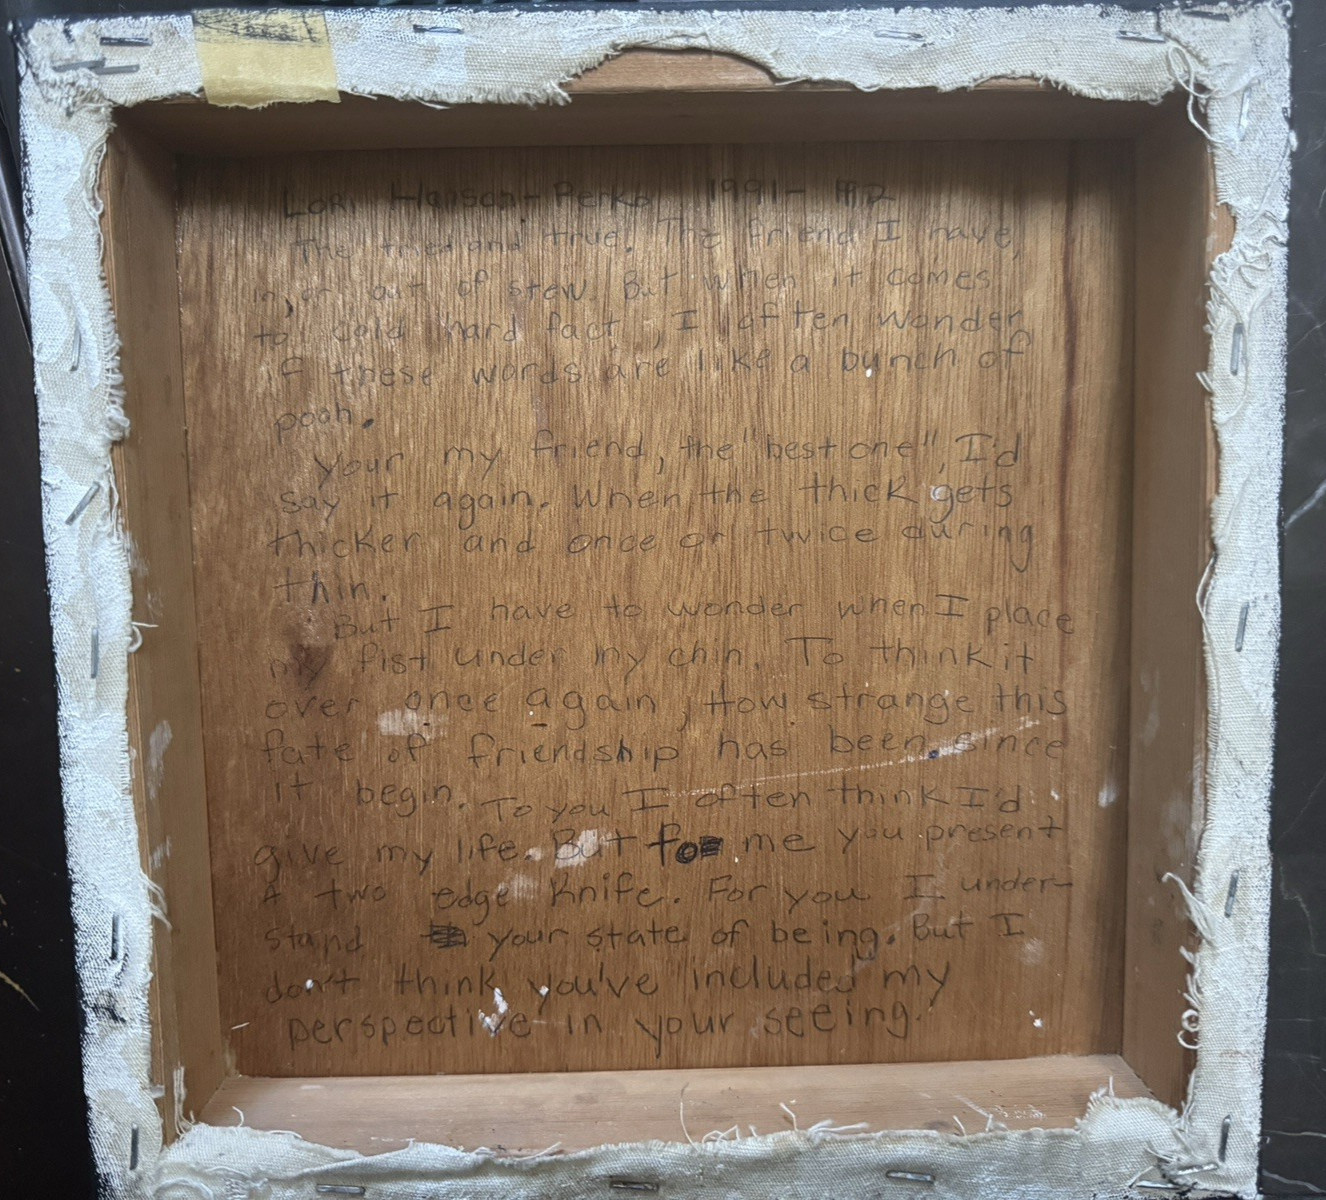 Lori Hanson-Perko 1991-1992
The tried and true. The friend I have,
in, or out of stew. But when it comes
to cold hard fact, I often wonder
if these words are like a bunch of
pooh.
your my friend, the "best one", I'd
say it again. When the thick gets
thicker and once or twice during
thin.
But I have to wonder when I place
my fist under my chin. To think it
over once again, How strange this
fate of friendship has been since
it begin. To you I often think I'd
give my life. But for me you present
A two edge knife. For you I under-
stand your state of being. But I
don't think you've included my
perspective in your seeing.